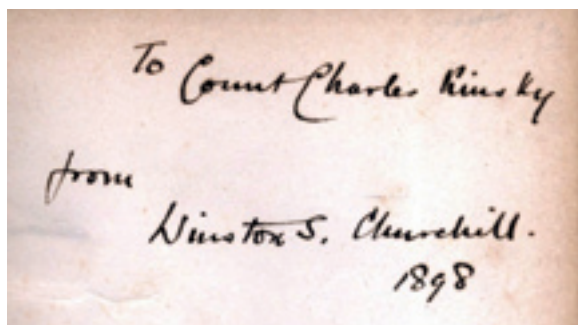 To Count Charles Kinsky
from
Winston S. Churchill.
1898